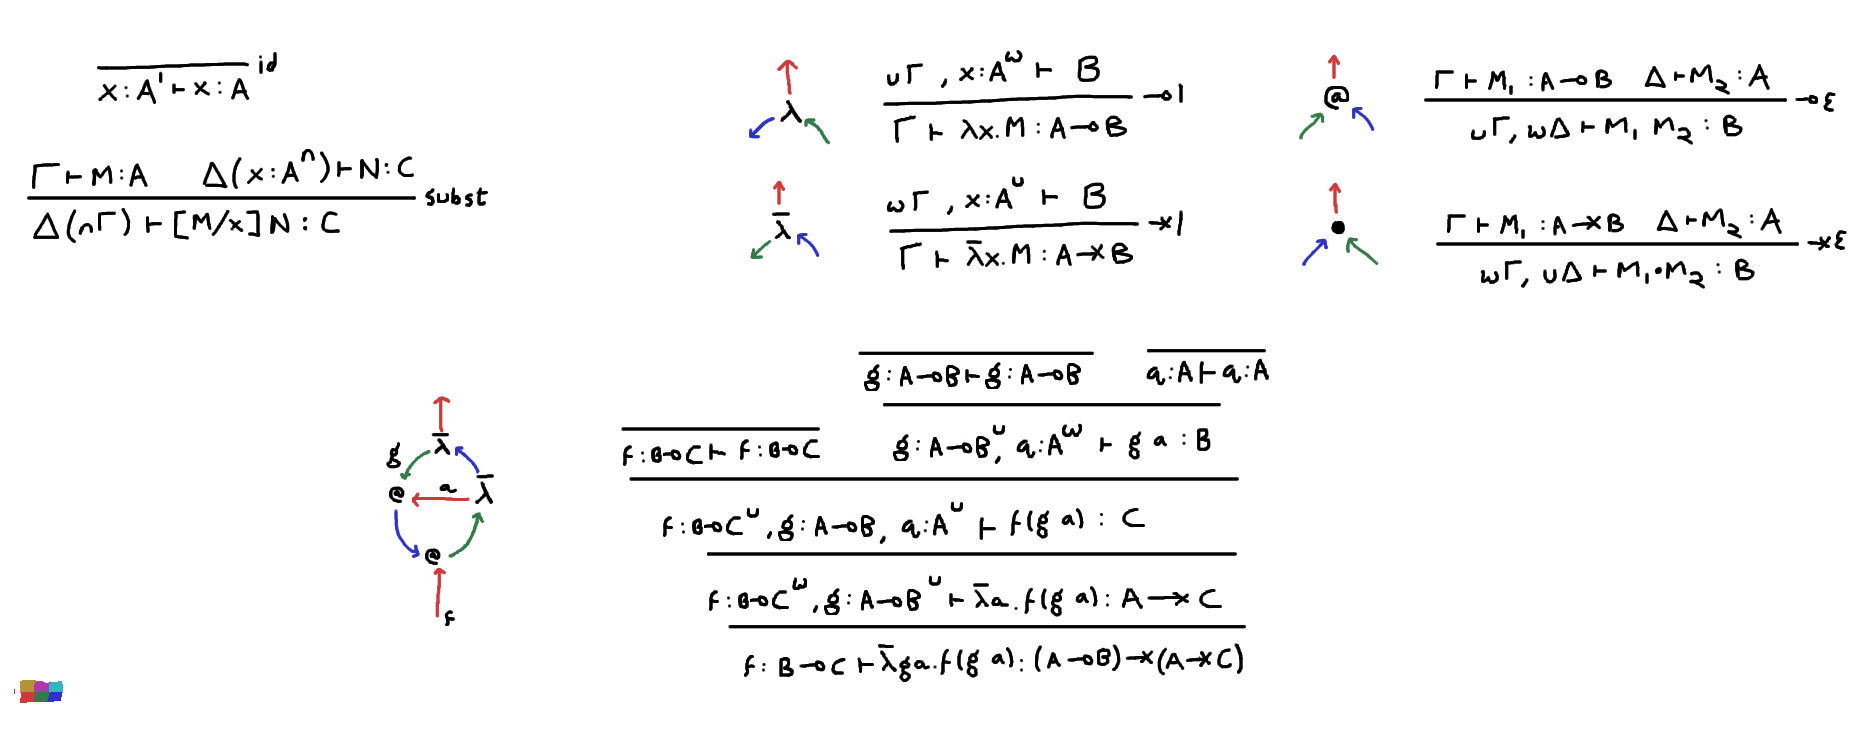 x : A¹ ⊢ x : A id
Γ ⊢ M : A Δ(x : Aⁿ) ⊢ N : C
Δ(nΓ) ⊢ [M/x] N : C subst
λ
υΓ , x : A^ω ⊢ B
Γ ⊢ λx. M : A ⊸ B ⊸I
λ̄
ωΓ , x : A^υ ⊢ B
Γ ⊢ λ̄x. M : A ⤬ B ⤬I
@
Γ ⊢ M₁ : A ⊸ B Δ ⊢ M₂ : A
υΓ, ωΔ ⊢ M₁ M₂ : B ⊸E
Γ ⊢ M₁ : A ⤬ B Δ ⊢ M₂ : A
ωΓ, υΔ ⊢ M₁ • M₂ : B ⤬E
λ̄
g
@ a λ̄
@
f
g : A ⊸ B ⊢ g : A ⊸ B a : A ⊢ a : A
f : B ⊸ C ⊢ f : B ⊸ C g : A ⊸ B^υ, a : A^ω ⊢ g a : B
f : B ⊸ C^υ, g : A ⊸ B, a : A^υ ⊢ f(g a) : C
f : B ⊸ C^ω, g : A ⊸ B^υ ⊢ λ̄a. f(g a) : A ⤬ C
f : B ⊸ C ⊢ λ̄ga. f(g a) : (A ⊸ B) ⤬ (A ⤬ C)